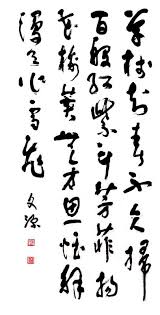 草樹知春不久歸
百般紅紫斗芳菲楊
花榆莢無才思惟解
漫天作雪飛